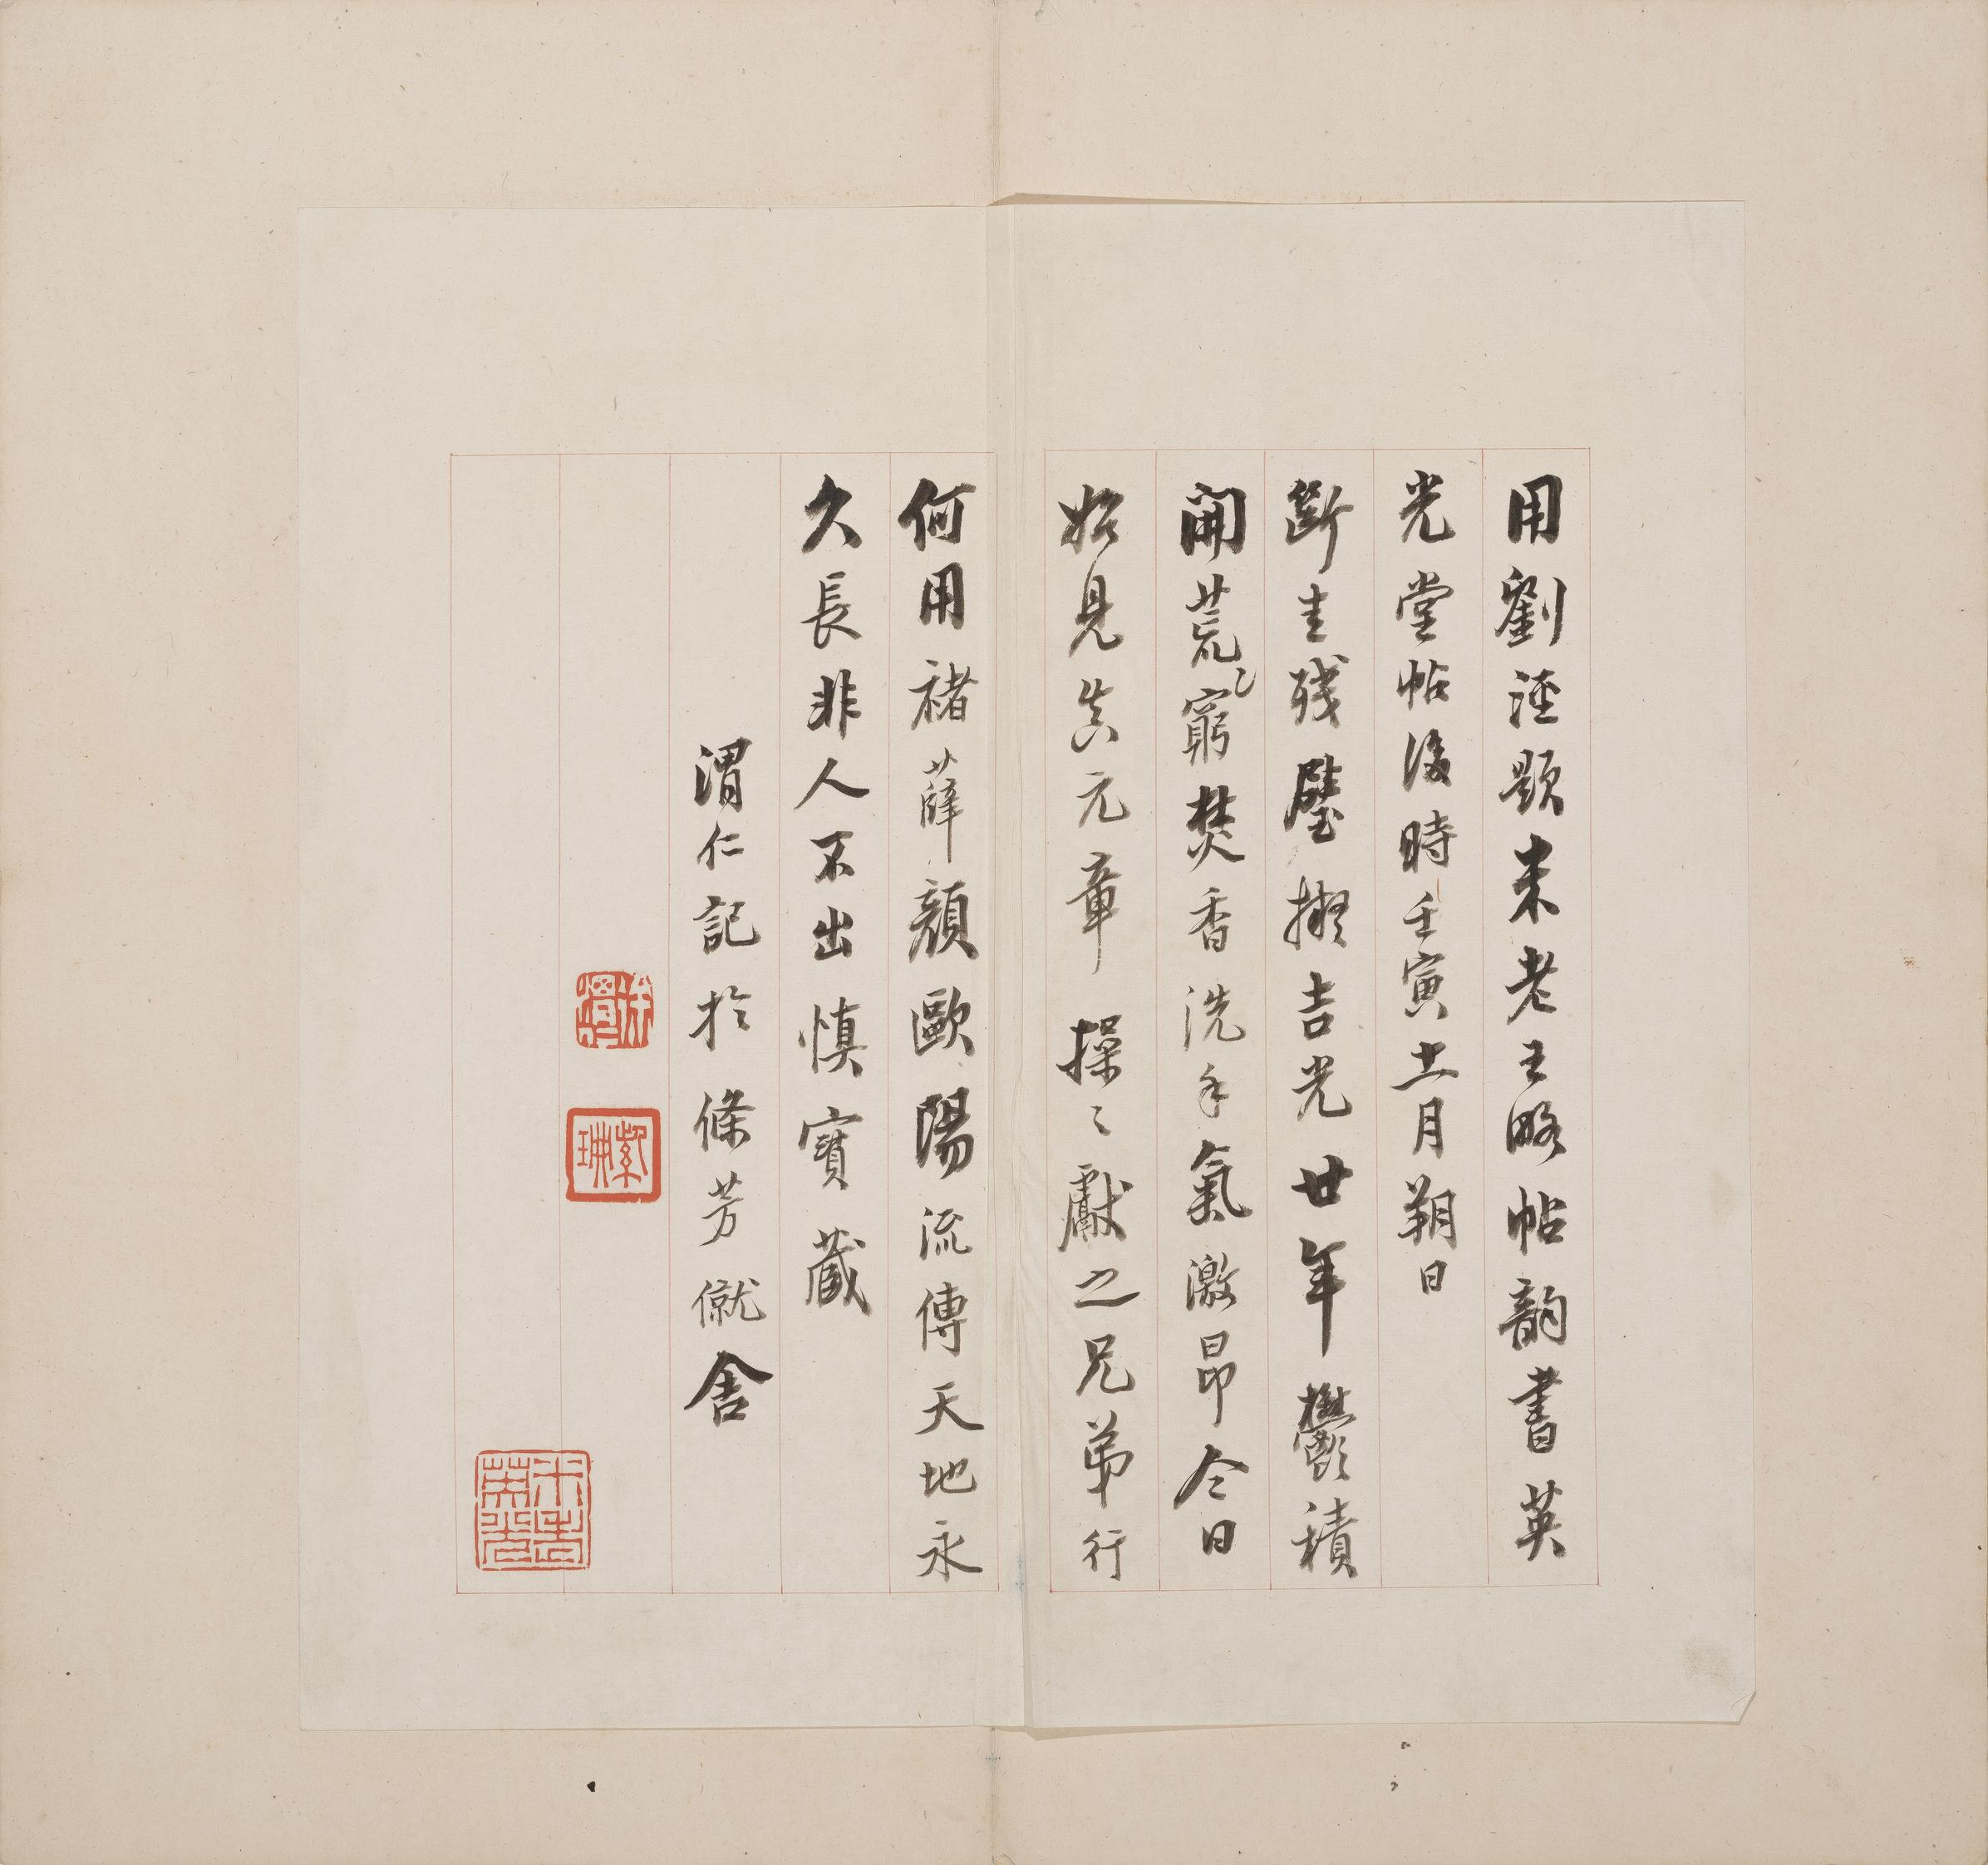 用劉涇題米老王略帖韵書英
光堂帖後時壬寅十一月朔日
斷圭殘璧擬吉光廿年鬱積
開荒窮焚香洗手氣激昂今日
始見真元章操〻獻之兄弟行
何用褚薛顏歐陽流傳天地永
久長非人不出慎寶藏
渭仁記於條芳僦舍
紫珊